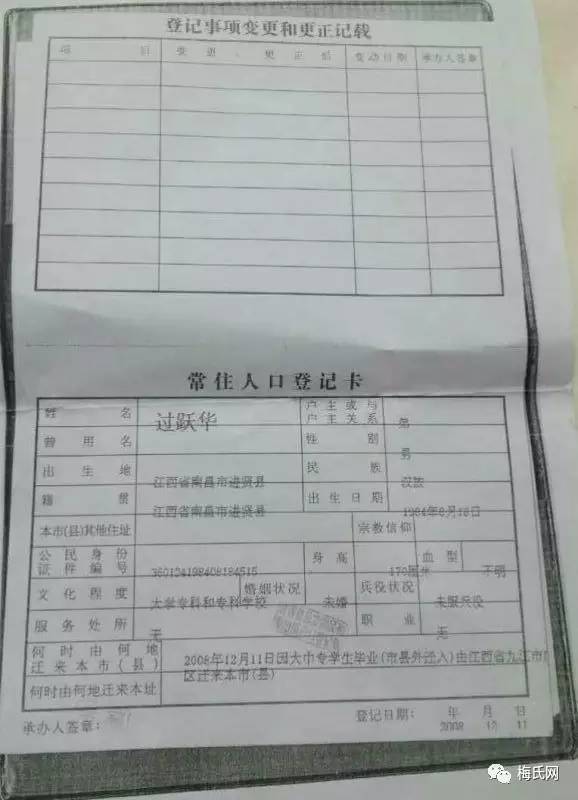 登记事项变更和更正记载
项 目 变 更 、 更 正 后 变动日期 承办人签章
常住人口登记卡
姓 名 过跃华 户主或与户主关系 弟
曾 用 名 性 别 男
出 生 地 江西省南昌市进贤县 民 族 汉族
籍 贯 江西省南昌市进贤县 出生日期 1984年8月18日
本市(县)其他住址 宗教信仰
公民身份证件编号 身高 170厘米 血型 不明
文化程度 大学专科和专科学校 婚姻状况 未婚 兵役状况 未服兵役
服务处所 无 职 业 无
何时由何地迁来本市(县) 2008年12月11日因大中专学生毕业(市县外迁入)由江西省九江市
区迁来本市(县)
何时由何地迁来本址
承办人签章: 登记日期: 年 月 日
2008 12 11
梅氏网